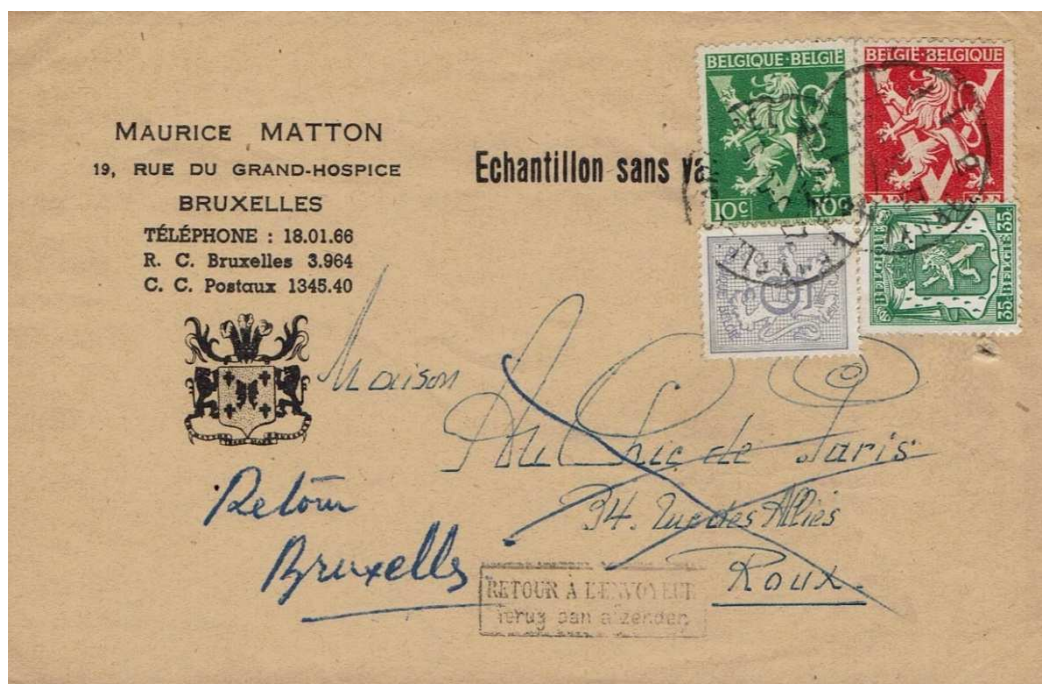 MAURICE MATTON
19, RUE DU GRAND-HOSPICE
BRUXELLES
TÉLÉPHONE : 18.01.66
R. C. Bruxelles 3.964
C. C. Postaux 1345.40
Echantillon sans va
BELGIQUE·BELGIE
10c 10c
BELGIE·BELGIQUE
BELGIQUE 35
35·BELGIE
Maison
Au Chic de Paris
94. Rue des Alliés
Roux
Retour
Bruxelles
RETOUR À L'ENVOYEUR
Terug aan afzender